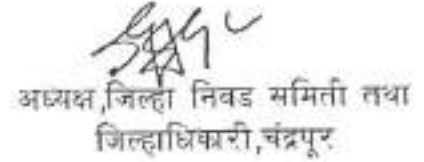 अध्यक्ष,जिल्हा निवड समिती तथा
जिल्हाधिकारी,चंद्रपूर